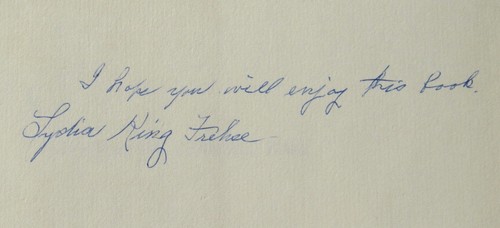 I hope you will enjoy this book.
Lydia King Frehse